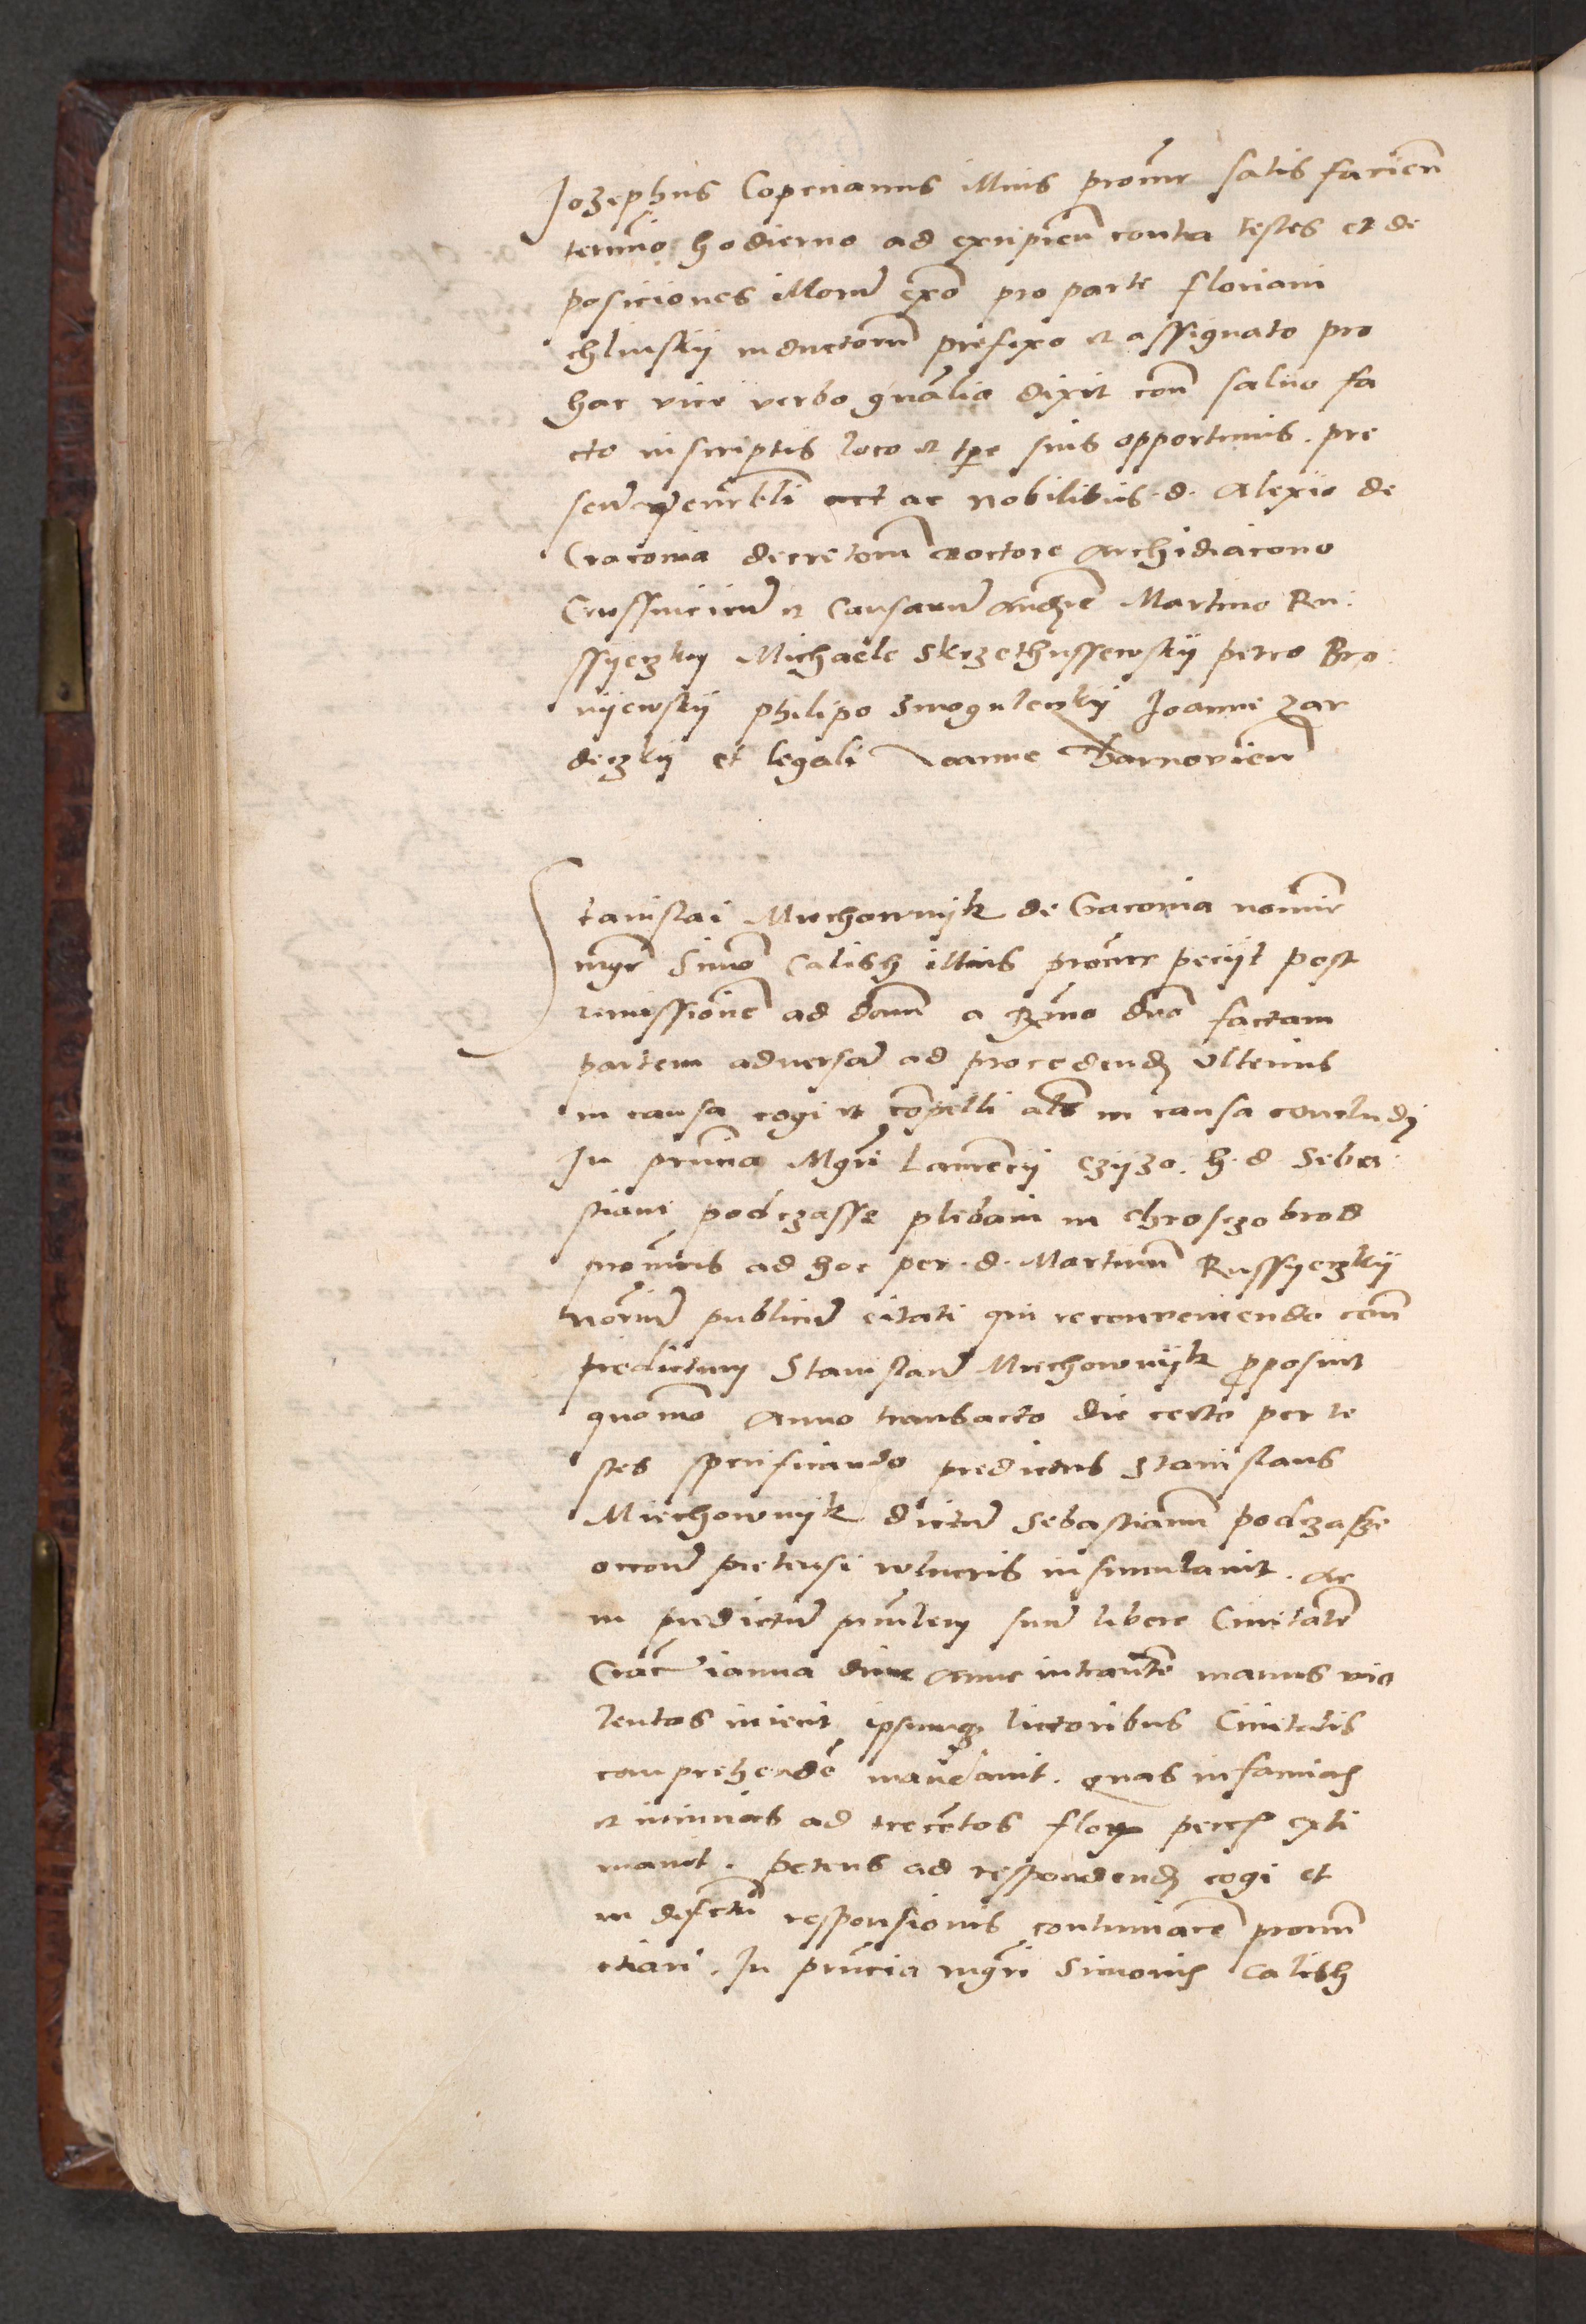 Jozephus Copenanus illius procur satis facien
termino hodierno ad excipien contra testes et de
posiciones illorum exo pro parte floriani
chlinskij inductorum prefixo et assignato pro
hac vice verbo gnalia dixit con salvo fa
cto inscriptis loco et tpe suis opportunis . pre
sen venrbli ac nobilibus . d . Alexio de
Cracovia decretorum doctore Archidiacono
Crussvicien et causarum Audien Martino Ru:
ssyeczky Michaele Skrzethussewskij petro Bro:
nijewskij philipo Smoguleczkij Joanne Zar
deczkij et legali Joanne Tharnovien

Stanislai Miechownijk de Cracovia nomine
mgr Simo Calish illius procur peciit post
remissionem ad dcam a Rmo dno factam
partem adversam ad procedend ulterius
in causa cogi et compelli als in causa concludj
In pruncia Mgri Laurencij Czyzo . h . d Seba
stiani podczasse plebani in chrosczobrod
procuris ad hoc per . d . Martinum Russyeczkij
norium publicum citati qui reconveniendo con
predictum Stanislaum Miechownijk proposuit
quomo Anno transacto die certo per te
stes specificando predictus Stanislaus
Miechownijk dictum Sebastianum podczasze
occone pretensi vulneris insimulavit . Ac
in predictum prinlem suum libere Civitatem
Crac ianua intrantem manus vio
lentas iniecit ipsumq lictoribus Civitatis
comprehende mandavit . Quas infamias
et iniurias ad trecentos flor pecc exti
mavit . petens ad respondend cogi et
in defectu responsionis contumacem pronun
ctiari . In pruncia mgri Simonis Calish